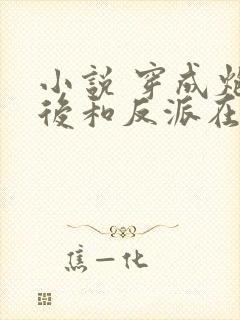 小說 穿成炮
後和反派在
焦一化